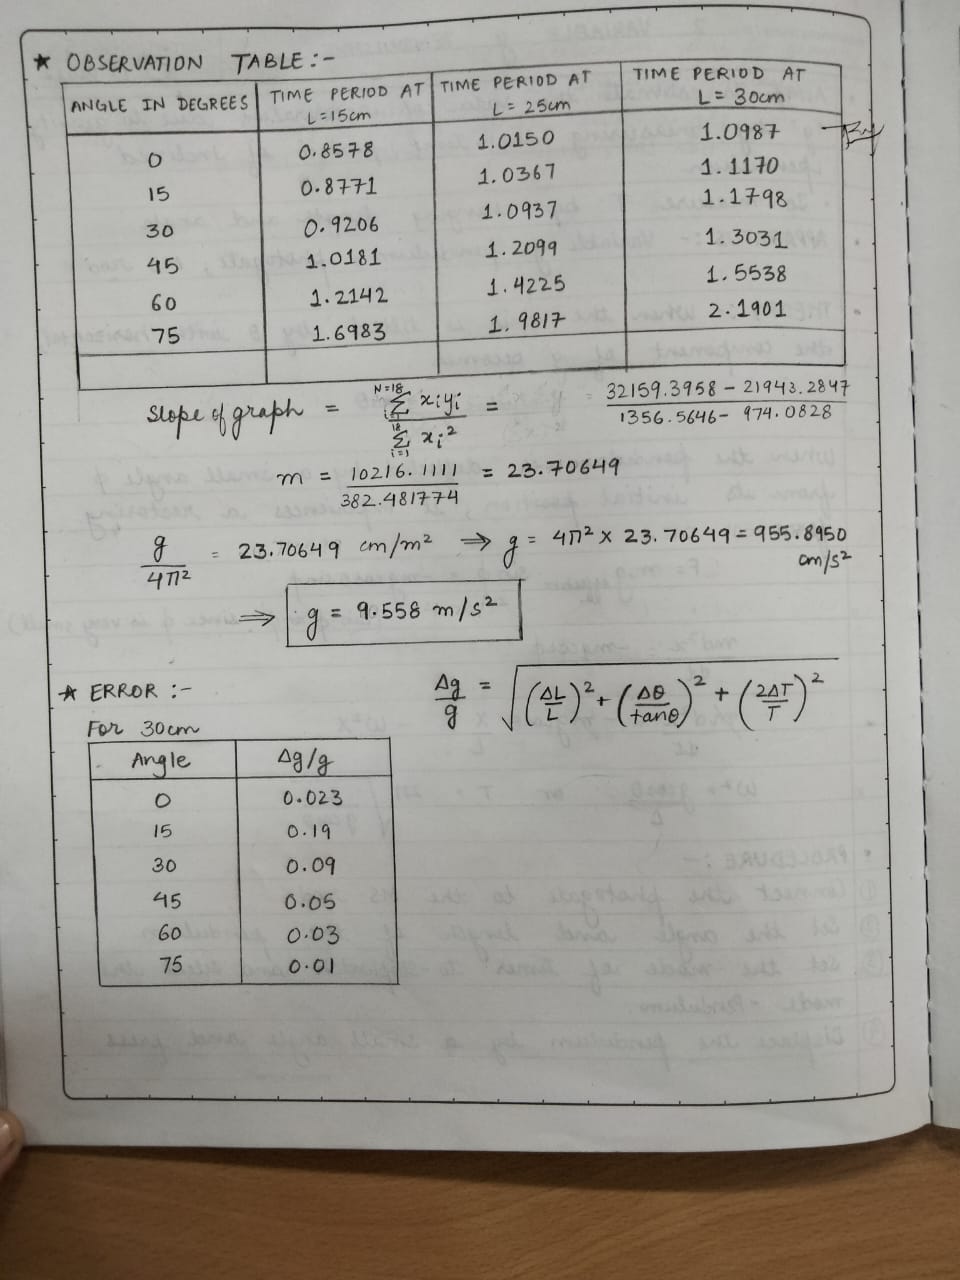 ★ OBSERVATION TABLE :-
ANGLE IN DEGREES | TIME PERIOD AT L=15cm | TIME PERIOD AT L= 25cm | TIME PERIOD AT L= 30cm
0 | 0.8578 | 1.0150 | 1.0987
15 | 0.8771 | 1.0367 | 1.1170
30 | 0.9206 | 1.0937 | 1.1798
45 | 1.0181 | 1.2099 | 1.3031
60 | 1.2142 | 1.4225 | 1.5538
75 | 1.6983 | 1.9817 | 2.1901
Slope of graph = N=18 Σ i=1 xiyi / 18 Σ i=1 xi² = 32159.3958 - 21943.2847 / 1356.5646 - 974.0828
m = 10216.1111 / 382.481774 = 23.70649
g / 4π² = 23.70649 cm/m² ⇒ g = 4π² × 23.70649 = 955.8950 cm/s²
⇒ g = 9.558 m/s²
★ ERROR :-
Δg/g = √((ΔL/L)² + (Δθ/tanθ)² + (2ΔT/T)²)
For 30cm
Angle | Δg/g
0 | 0.023
15 | 0.19
30 | 0.09
45 | 0.05
60 | 0.03
75 | 0.01